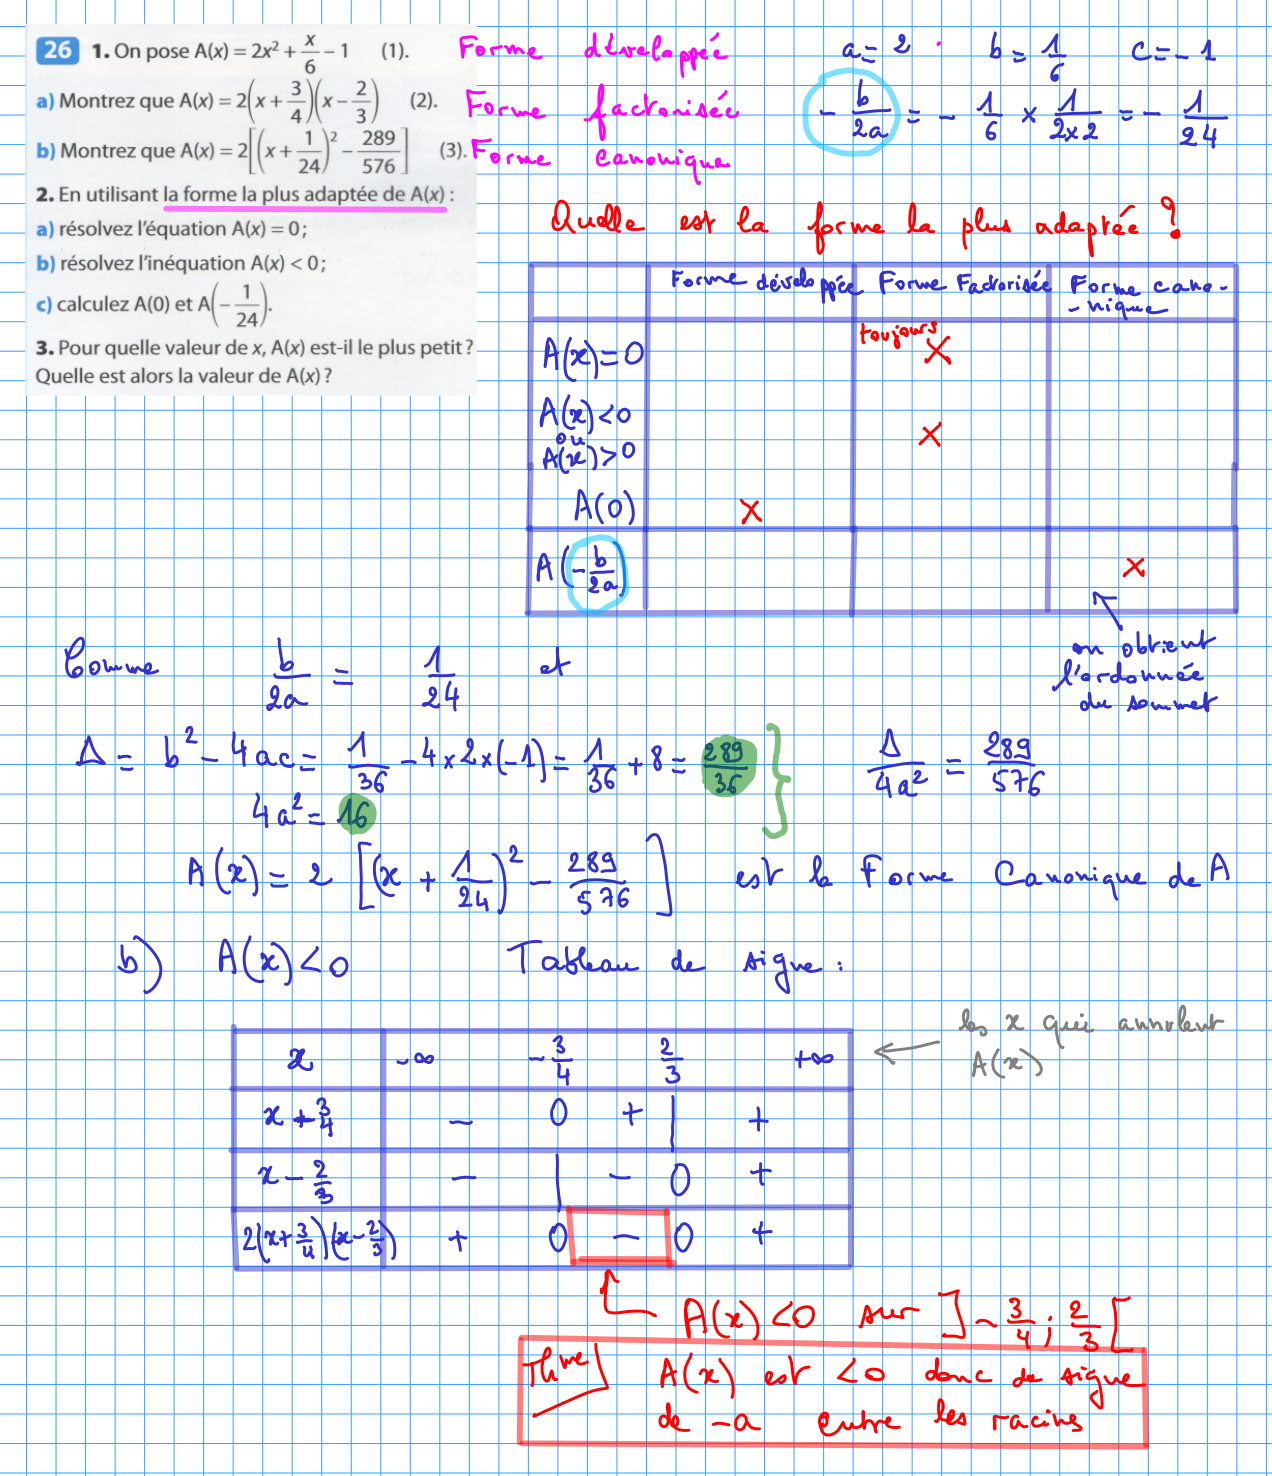 26 1. On pose A(x) = 2x² + x/6 − 1 (1). Forme développée a = 2 b = 1/6 c = −1
a) Montrez que A(x) = 2(x + 3/4)(x − 2/3) (2). Forme factorisée −b/2a = −1/6 × 1/(2×2) = −1/24
b) Montrez que A(x) = 2[(x + 1/24)² − 289/576] (3). Forme canonique
2. En utilisant la forme la plus adaptée de A(x) :
a) résolvez l'équation A(x) = 0 ;
b) résolvez l'inéquation A(x) < 0 ;
c) calculez A(0) et A(−1/24).
3. Pour quelle valeur de x, A(x) est-il le plus petit ?
Quelle est alors la valeur de A(x) ?
Quelle est la forme la plus adaptée ?
Forme développée Forme Factorisée Forme cano-
-nique
toujours
A(x) = 0 X
A(x) < 0
ou X
A(x) > 0
A(0) X
A(−b/2a) X
on obtient
l'ordonnée
du sommet
Comme b/2a = 1/24 et
Δ = b² − 4ac = 1/36 − 4×2×(−1) = 1/36 + 8 = 289/36 } Δ/4a² = 289/576
4a² = 16
A(x) = 2 [(x + 1/24)² − 289/576] est la Forme Canonique de A
b) A(x) < 0 Tableau de signe :
les x qui annulent
A(x)
x −∞ −3/4 2/3 +∞
x + 3/4 − 0 + | +
x − 2/3 − | − 0 +
2(x+3/4)(x−2/3) + 0 − 0 +
A(x) < 0 sur ]−3/4 ; 2/3[
Thme A(x) est < 0 donc de signe
de −a entre les racines